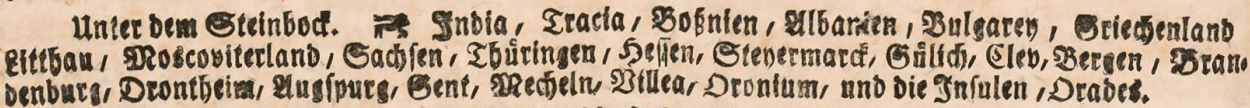 Unter dem Steinbock. India / Tracia / Boßnien / Albanien / Bulgarey / Griechenland
Litthau / Moscoviterland / Sachsen / Thüringen / Hessen / Steyermarck / Gülich / Clev / Bergen / Bran-
denburg / Drontheim / Augspurg / Gent / Mecheln / Villea / Oronium / und die Insulen / Orades.